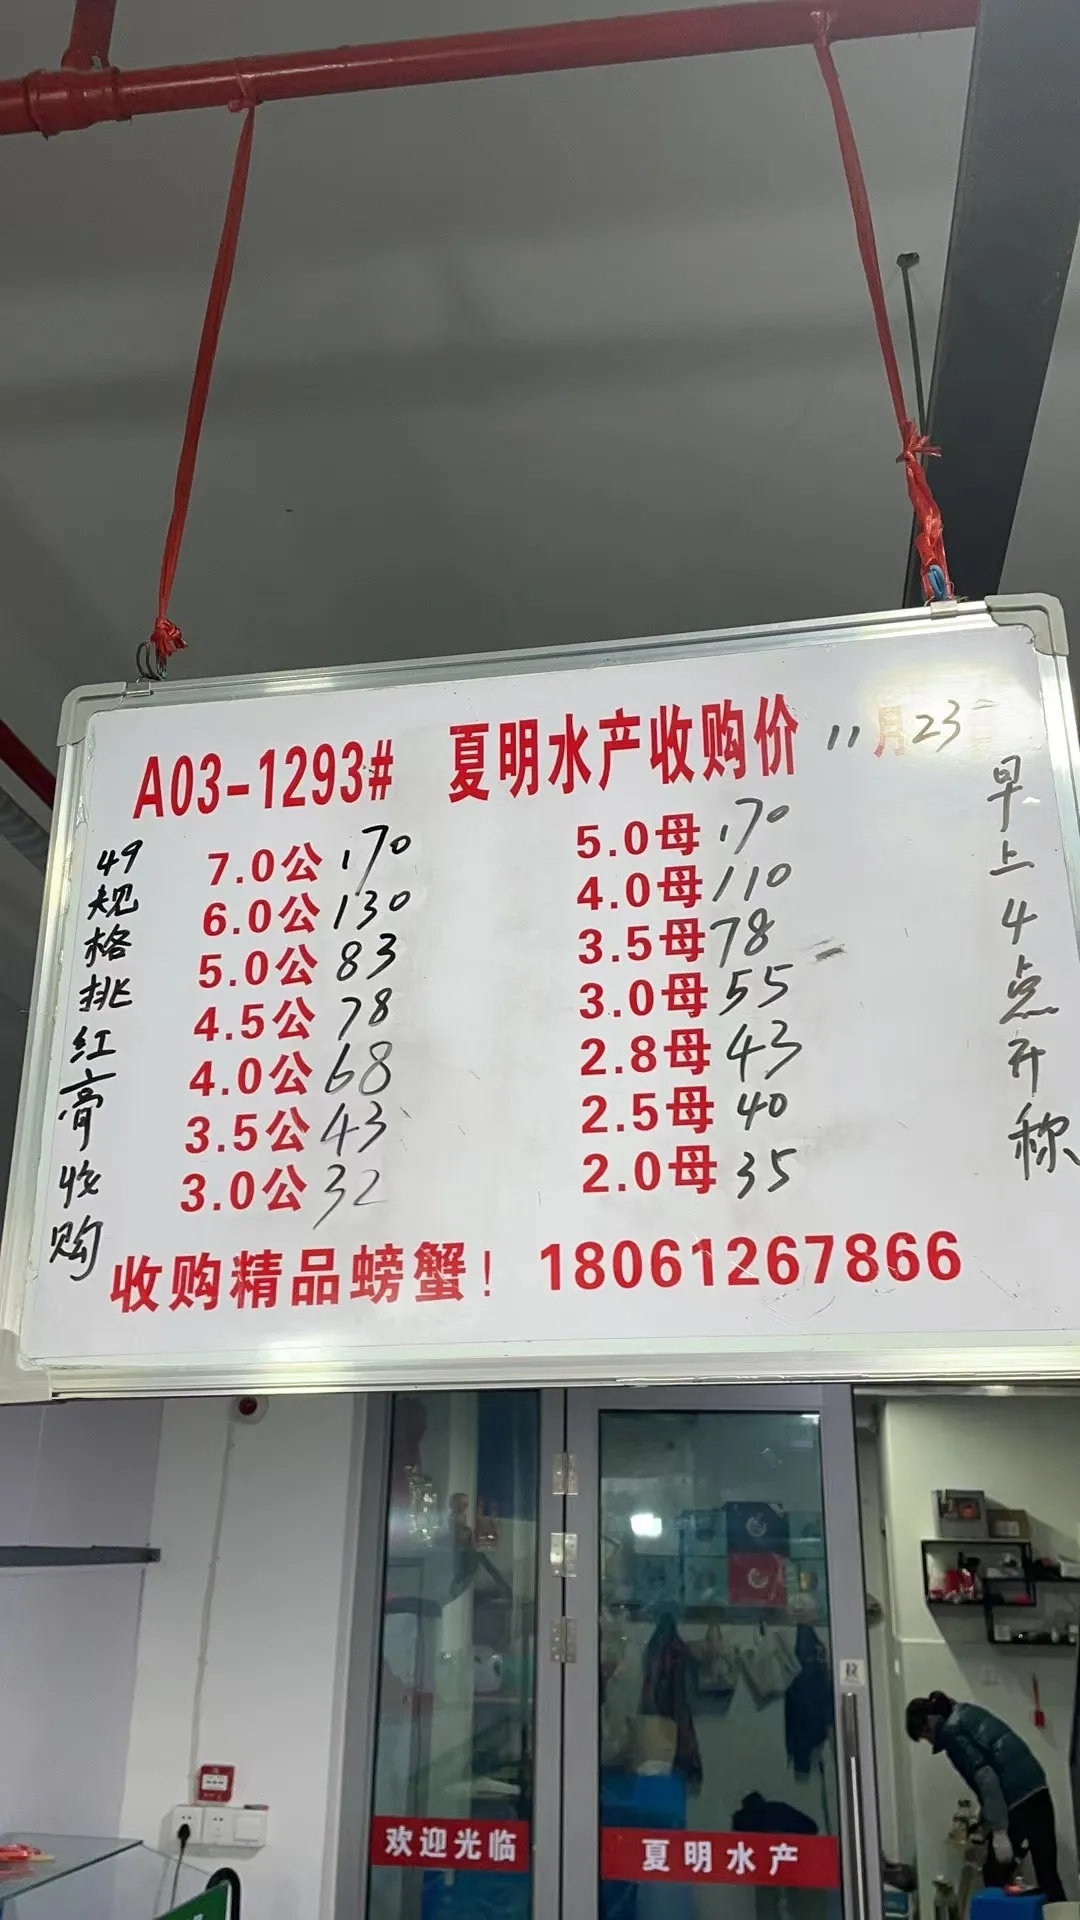 A03-1293# 夏明水产收购价 11月23日
49规格挑红膏收购
7.0公 170
6.0公 130
5.0公 83
4.5公 78
4.0公 68
3.5公 43
3.0公 32
5.0母 170
4.0母 110
3.5母 78
3.0母 55
2.8母 43
2.5母 40
2.0母 35
早上4点开称
收购精品螃蟹! 18061267866
欢迎光临
夏明水产